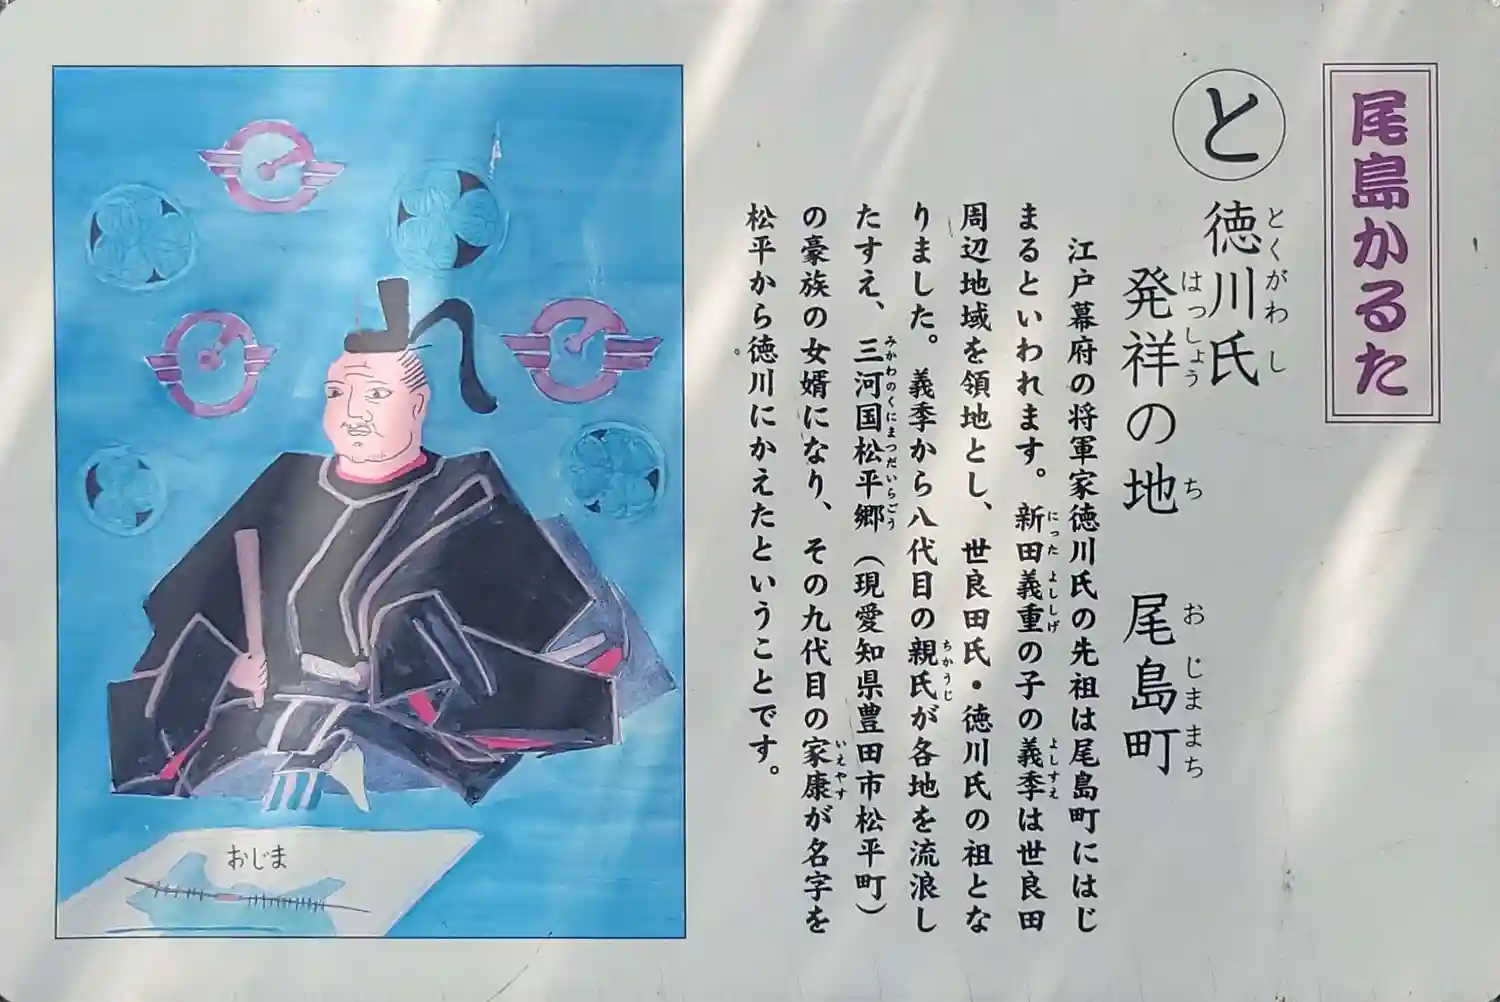 尾島かるた
と
徳川氏
とくがわし
発祥の地 尾島町
はっしょう ち おじままち
江戸幕府の将軍家徳川氏の先祖は尾島町にはじ
まるといわれます。新田義重の子の義季は世良田
にった よししげ よしすえ
周辺地域を領地とし、世良田氏・徳川氏の祖とな
りました。義季から八代目の親氏が各地を流浪し
ちかうじ
たすえ、三河国松平郷(現愛知県豊田市松平町)
みかわのくにまつだいらごう
の豪族の女婿になり、その九代目の家康が名字を
いえやす
松平から徳川にかえたということです。
おじま